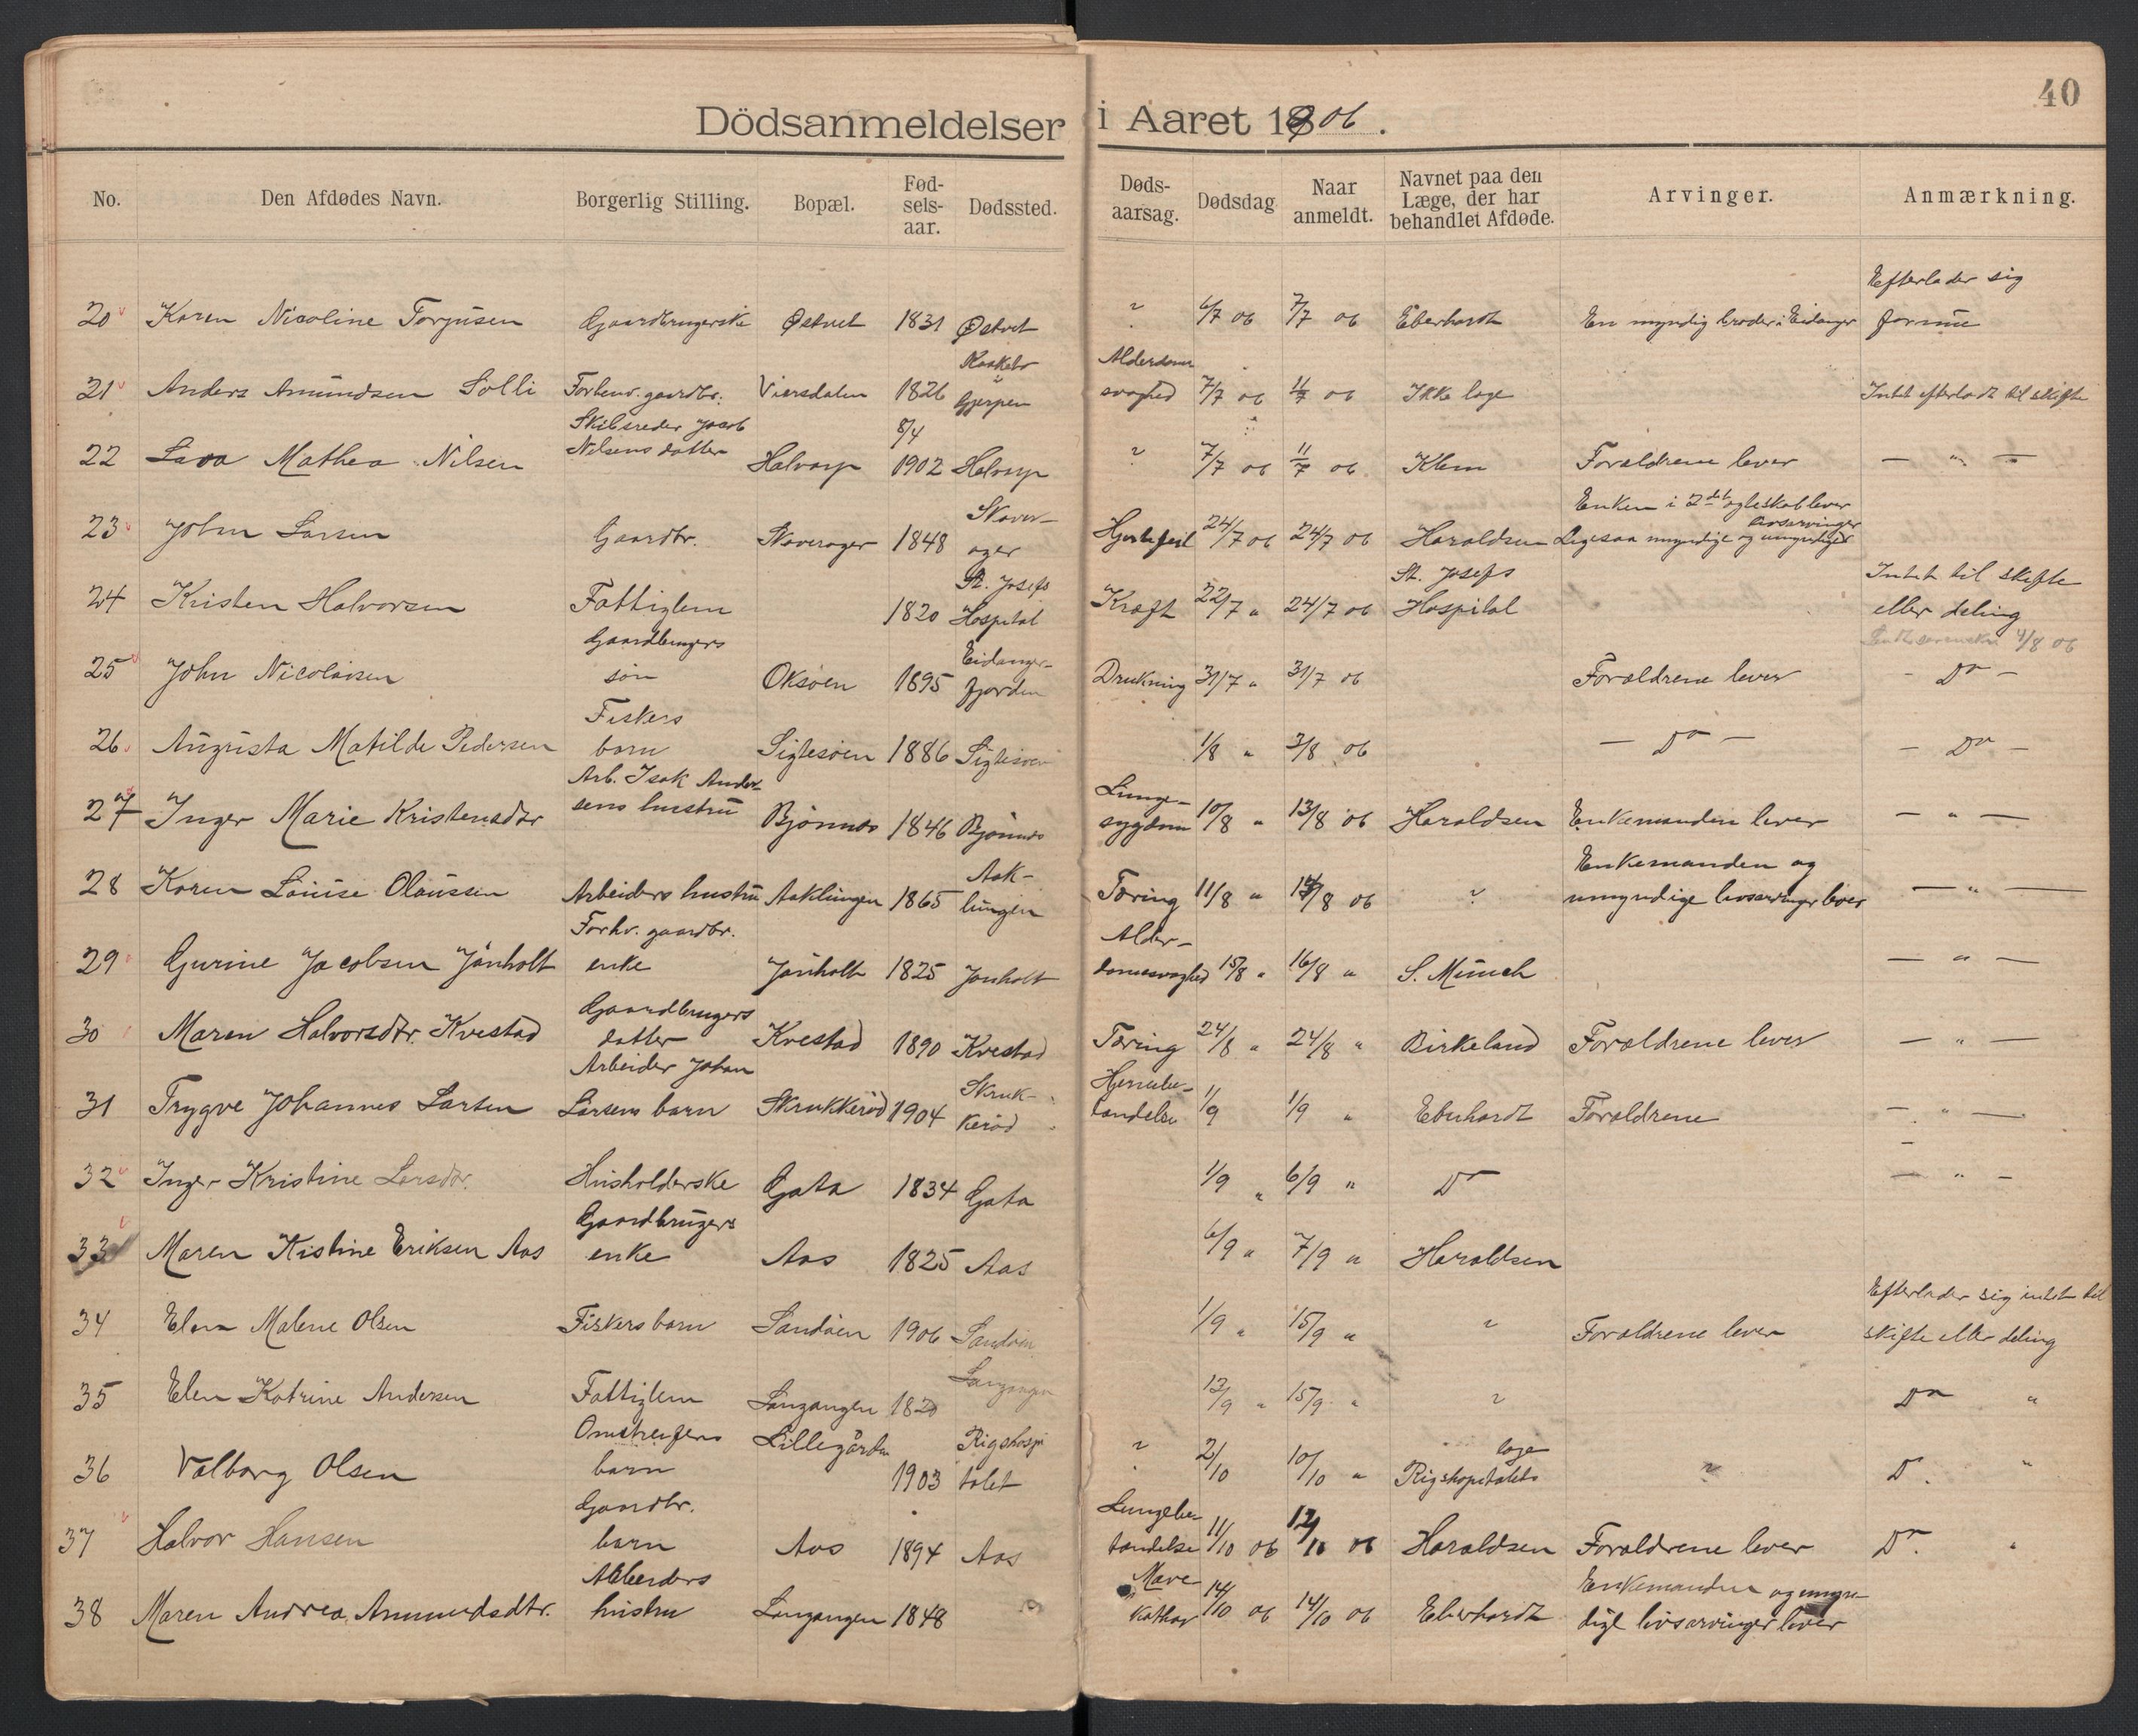 40
Dödsanmeldelser i Aaret 1906.
No. Den Afdødes Navn. Borgerlig Stilling. Bopæl. Fød-sels-aar. Dødssted. Døds-aarsag. Dødsdag Naar anmeldt. Navnet paa den Læge, der har behandlet Afdøde. Arvinger. Anmærkning.
20 Karen Nicoline Torjusen Gaardbrugerske Østvet 1831 Østvet ? 6/7 06 7/7 06 Eberhardt En myndig broder i Eidanger Efterlader sig formue
21 Anders Amundsen Solli Forhenv. gaardbr. Viersdalen 1826 Gjerpen Alderdoms svaghed 7/7 06 11/7 06 Ikke læge Intet efterladt til skifte
22 Mathea Nilsen Skibsreder Jacob Nilsens datter Halvarp 8/4 1902 Halvarp ? 7/7 06 11/7 06 Klem Forældrene lever — " —
23 John Larsen Gaardbr. Skaverager 1848 Skaver-ager Hjertefeil 24/7 06 24/7 06 Haraldsen Enken i 2det egteskab lever Ligesaa myndige og umyndige livsarvinger
24 Kristen Halvorsen Fattiglem 1820 St. Josefs Hospital Kræft 22/7 " 24/7 06 St. Josefs Hospital Intet til skifte eller deling
4/8 06
25 John Nicolaisen Gaardbrugers søn Oksøen 1895 Eidanger-fjorden Drukning 31/7 " 31/7 06 Forældrene lever - Do -
26 Augusta Matilde Pedersen Fiskers barn Siglesøen 1886 Siglesøen 1/8 " 3/8 06 — Do — - Do -
27 Inger Marie Kristensdtr Arb. Isak Ander-sens hustru Bjønnes 1846 Bjønnes Lunge-sygdom 10/8 " 13/8 06 Haraldsen Enkemanden lever — " —
28 Karen Louise Olaussen Arbeiders hustru Aaklungen 1865 Aak-lungen Tæring 11/8 " 14/8 06 ? Enkemanden og umyndige livsarvinger lever — " —
29 Gurine Jacobsen Jønholt Forhv. gaardbr. enke Jønholt 1825 Jønholt Alder-domssvaghed 15/8 " 16/8 " S. Münch — " —
30 Maren Halvorsdtr. Kvestad Gaardbrugers datter Kvestad 1890 Kvestad Tæring 24/8 " 24/8 " Birkeland Forældrene lever — " —
31 Trygve Johannes Larsen Arbeider Johan Larsens barn Skrukkerød 1904 Skruk-kerød Hjernebe-tændelse 1/9 1/9 " Eberhardt Forældrene — " —
32 Inger Kristine Larsdtr. Husholderske Gata 1834 Gata 1/9 " 6/9 " Do — " —
33 Maren Kistine Eriksen Aas Gaardbrugers enke Aas 1825 Aas 6/9 " 7/9 " Haraldsen
34 Elen Malene Olsen Fiskers barn Sandøen 1906 Sandøen 1/9 " 15/9 " ? Forældrene lever Efterlader sig intet til skifte eller deling
35 Elen Katrine Andersen Fattiglem Langangen 1820 Langangen 13/9 " 15/9 " ? Do "
36 Valborg Olsen Omstreifers barn Lillegården 1903 Rigshospi-talet ? 2/10 10/10 " læge Rigshopitalets ? D. "
37 Halvor Hansen Gaardbr. barn Aas 1894 Aas Lungebe-tændelse 11/10 06 12/10 06 Haraldsen Forældrene lever Do. "
38 Maren Andrea Ammundsdtr. Arbeiders hustru Langangen 1848 Mave Kathar 14/10 06 14/10 06 Eberhardt Enkemanden og umyn-dige livsarvinger lever